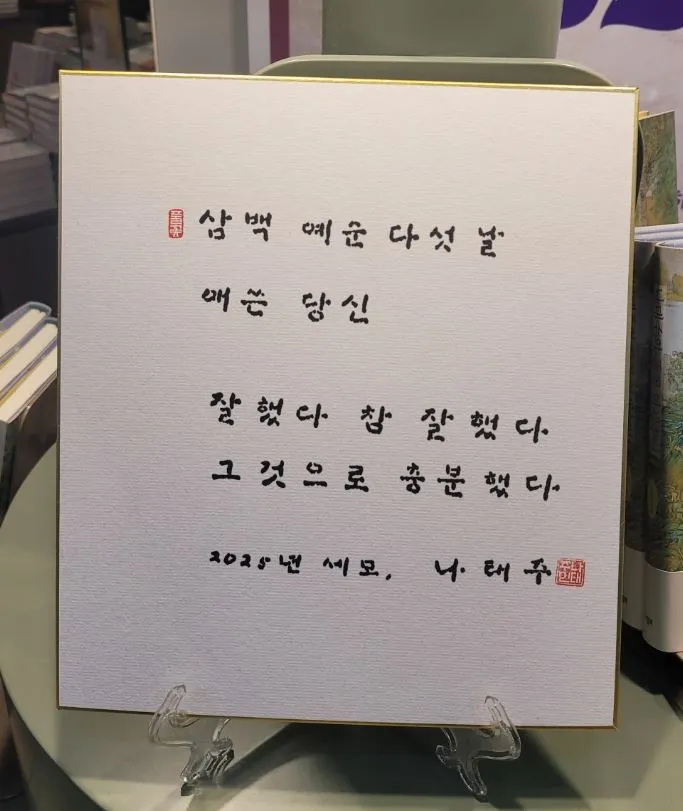 삼백 예순다섯 날
애쓴 당신
잘했다 참 잘했다
그것으로 충분했다
2025년 세모, 나태주